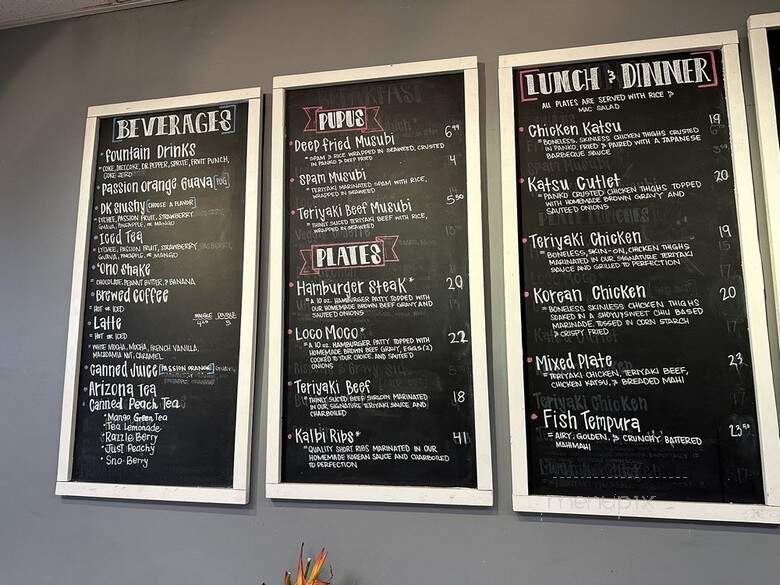 BEVERAGES
Fountain Drinks
COKE, DIET COKE, DR PEPPER, SPRITE, FRUIT PUNCH,
COKE ZERO
Passion Orange Guava POG
DK Slushy CHOOSE A FLAVOR
LYCHEE, PASSION FRUIT, STRAWBERRY
GUAVA, PINEAPPLE, OR MANGO
Iced Tea
LYCHEE, PASSION FRUIT, STRAWBERRY
GUAVA, PINEAPPLE, OR MANGO
'Ono Shake
CHOCOLATE, PEANUT BUTTER, & BANANA
Brewed Coffee
HOT OR ICED
Latte
HOT OR ICED
WHITE MOCHA, MOCHA, FRENCH VANILLA,
MACADAMIA NUT, CARAMEL
Canned Juice PASSION ORANGE
Arizona Tea
Canned Peach Tea
Mango Green Tea
Tea Lemonade
Razzle Berry
Just Peachy
Sno-Berry
PUPUS
Deep Fried Musubi 6.99
SPAM & RICE WRAPPED IN SEAWEED, CRUSTED
IN PANKO & DEEP FRIED
Spam Musubi 4
TERIYAKI MARINATED SPAM WITH RICE,
WRAPPED IN SEAWEED
Teriyaki Beef Musubi 5.50
THINLY SLICED TERIYAKI BEEF WITH RICE,
WRAPPED IN SEAWEED
PLATES
Hamburger Steak* 20
*A 10 OZ. HAMBURGER PATTY TOPPED WITH
OUR HOMEMADE BROWN BEEF GRAVY AND
SAUTEED ONIONS
Loco Moco* 22
*A 10 OZ. HAMBURGER PATTY TOPPED WITH
HOMEMADE BROWN BEEF GRAVY, EGGS (2)
COOKED TO YOUR CHOICE, AND SAUTEED
ONIONS
Teriyaki Beef 18
*THINLY SLICED BEEF SIRLOIN MARINATED
IN OUR SIGNATURE TERIYAKI SAUCE AND
CHARBOILED
Kalbi Ribs* 41
*QUALITY SHORT RIBS MARINATED IN OUR
HOMEMADE KOREAN SAUCE AND CHARBOILED
TO PERFECTION
LUNCH & DINNER
ALL PLATES ARE SERVED WITH RICE &
MAC SALAD
Chicken Katsu 19
*BONELESS, SKINLESS CHICKEN THIGHS CRUSTED
IN PANKO, FRIED & PAIRED WITH A JAPANESE
BARBEQUE SAUCE
Katsu Cutlet 20
*PANKO CRUSTED CHICKEN THIGHS TOPPED
WITH HOMEMADE BROWN GRAVY AND
SAUTEED ONIONS
Teriyaki Chicken 19
*BONELESS, SKIN-ON, CHICKEN THIGHS
MARINATED IN OUR SIGNATURE TERIYAKI
SAUCE AND GRILLED TO PERFECTION
Korean Chicken 20
*BONELESS SKINLESS CHICKEN THIGHS
SOAKED IN A SHOYU/SWEET CHILI BASED
MARINADE, TOSSED IN CORN STARCH
& CRISPY FRIED
Mixed Plate 23
*TERIYAKI CHICKEN, TERIYAKI BEEF,
CHICKEN KATSU, & BREADED MAHI
Fish Tempura
*AIRY, GOLDEN, & CRUNCHY BATTERED
MAHIMAHI
menupix